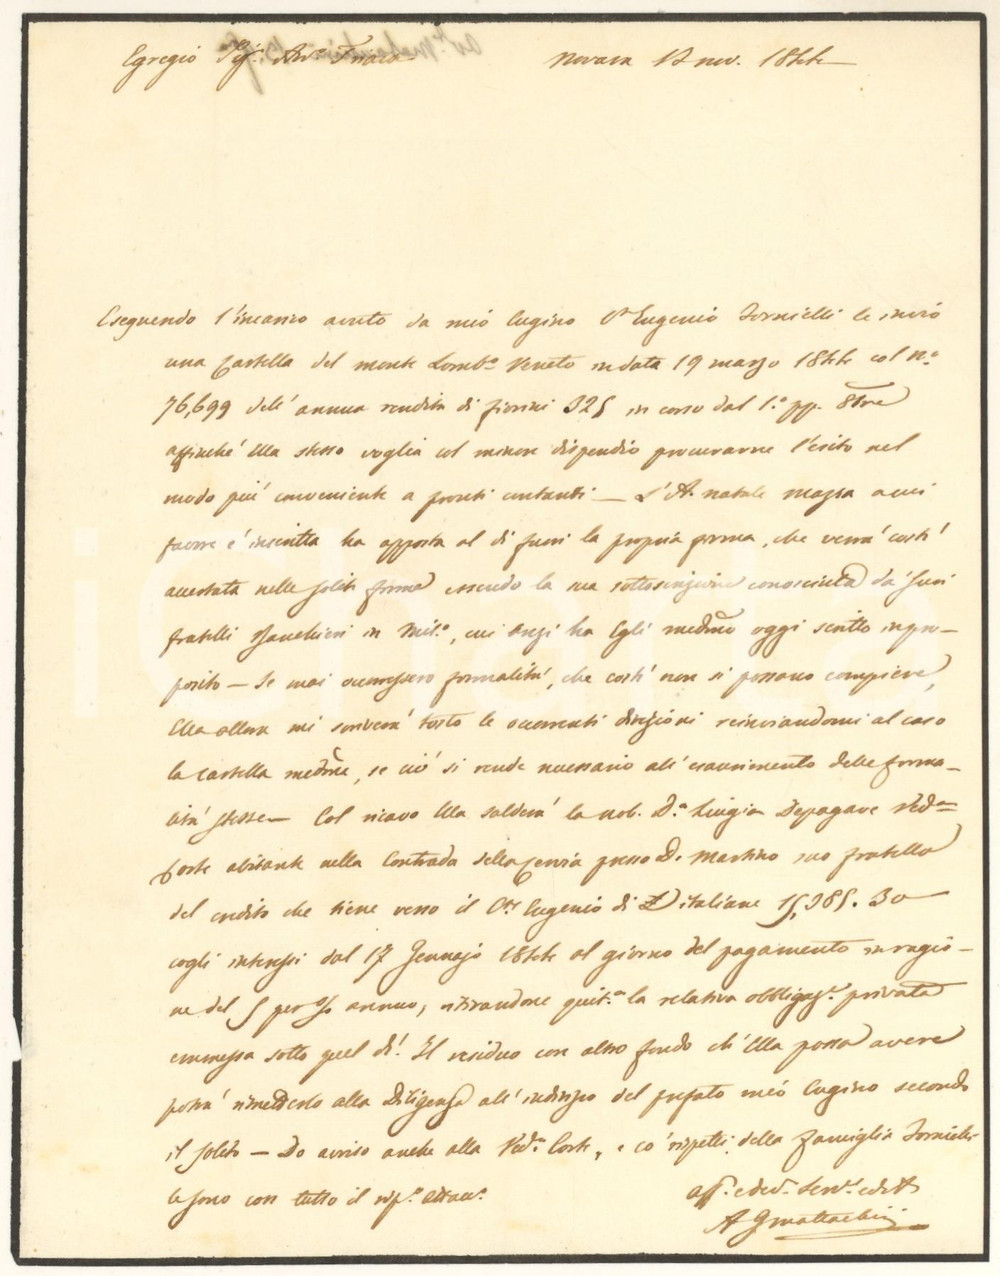 Egregio Sig.r Avv.o
Novara 12 nov. 1844
Eseguendo l'incarico avuto da mio Cugino C.te Eugenio Tornielli le invio
una Cartella del monte Lomb.o Veneto in data 19 marzo 1844 col n.o
76,699 dell'annua rendita di fiorini 325 in corso dal 1.o pp. 8bre
affinché Ella stessa voglia col minore dispendio procurarne l'esito nel
modo piu' conveniente a pronti contanti — L'A. natale a cui
favore e' inscritta ha apposta al di fuori la propria firma, che verra' costi'
accertata nelle solite forme essendo la sua sottoscrizione conosciuta da' Suoi
fratelli Banchieri in Mil.o, cui anzi ha Egli med.mo oggi scritto in pro-
posito — Se mai occorressero formalita', che costi' non si possano compiere,
Ella allora mi scrivera' tosto le occorrenti direzioni reinviandomi al caso
la cartella med.ma, se cio' si rende necessario all'esaurimento delle forma-
lita' stesse — Col ricavo Ella saldera' la nob. D.a Luigia Depagave Ved.a
Corte abitante nella Contrada della Cervia presso D. Martino suo fratello
del credito che tiene verso il C.te Eugenio di £ italiane 15,385. 30
cogli interessi dal 17 Gennajo 1844 al giorno del pagamento in ragio-
ne del 5 per % annuo, ritirandone quit.a la relativa obbligaz.e privata
emmessa sotto quel di'. Il residuo con altro fondo ch'Ella possa avere
potra' rimetterlo alla Diligenza all'indirizzo del prefato mio Cugino secondo
il solito — Do avviso anche alla Ved.a Corte, e co' rispetti della Famiglia Tornielli
le sono con tutto il risp.o
aff. e dev. Serv.e ed A.